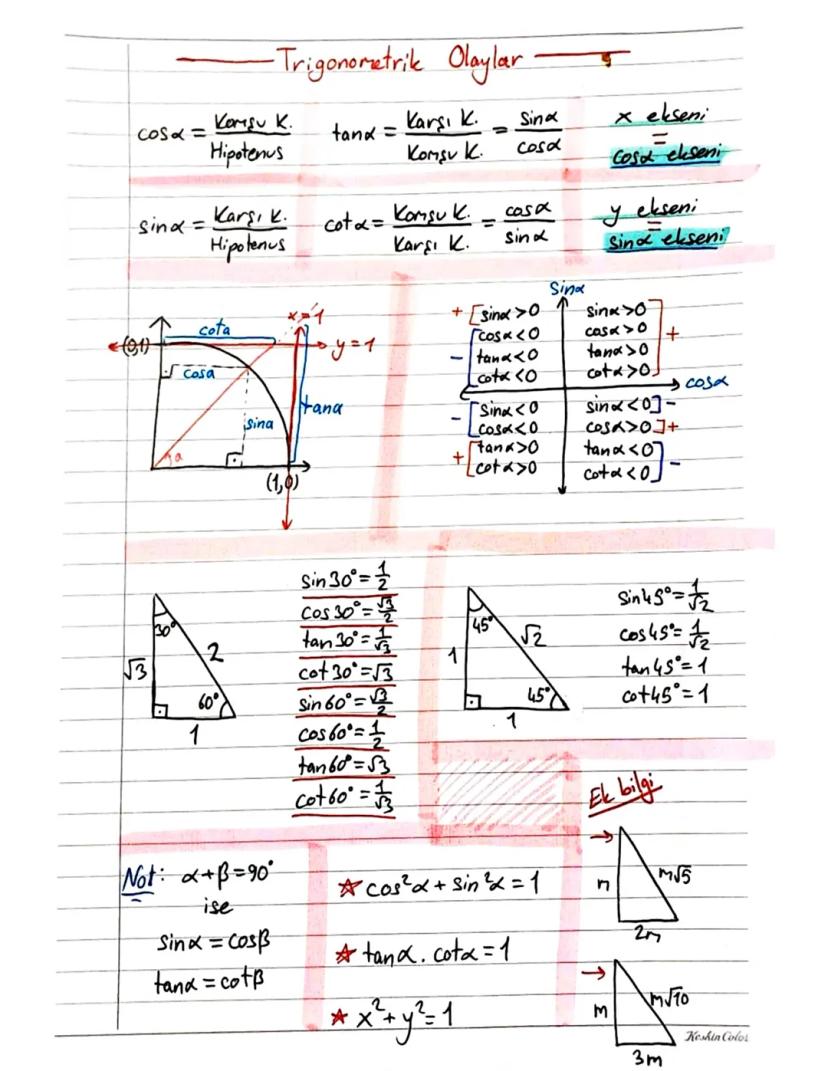 Trigonometrik Olaylar
cosα = Komşu K. / Hipotenüs
tanα = Karşı K. / Komşu K. = sinα / cosα
x ekseni
=
cosα ekseni
sinα = Karşı K. / Hipotenüs
cotα = Komşu K. / Karşı K. = cosα / sinα
y ekseni
=
sinα ekseni
x=1
cota
(0,1)
y=1
cosa
sina
tana
a
(1,0)
Sinα
+ [sinα>0
- [cosα<0
tanα<0
cotα<0
sinα>0
cosα>0
tanα>0
cotα>0 ] +
cosα
- [sinα<0
cosα<0
+ [tanα>0
cotα>0
sinα<0 ] -
cosα>0 ] +
tanα<0
cotα<0 ] -
30°
√3
2
60°
1
sin30°=1/2
cos30°=√3/2
tan30°=1/√3
cot30°=√3
sin60°=√3/2
cos60°=1/2
tan60°=√3
cot60°=1/√3
45°
1
√2
45°
1
Sin45°=1/√2
cos45°=1/√2
tan45°=1
cot45°=1
Ek bilgi
n
m√5
2m
m
m√10
3m
Not: α+β=90°
ise
sinα = cosβ
tanα = cotβ
☆ cos²α + sin²α = 1
☆ tanα . cotα = 1
★ x² + y² = 1
Keskin Color